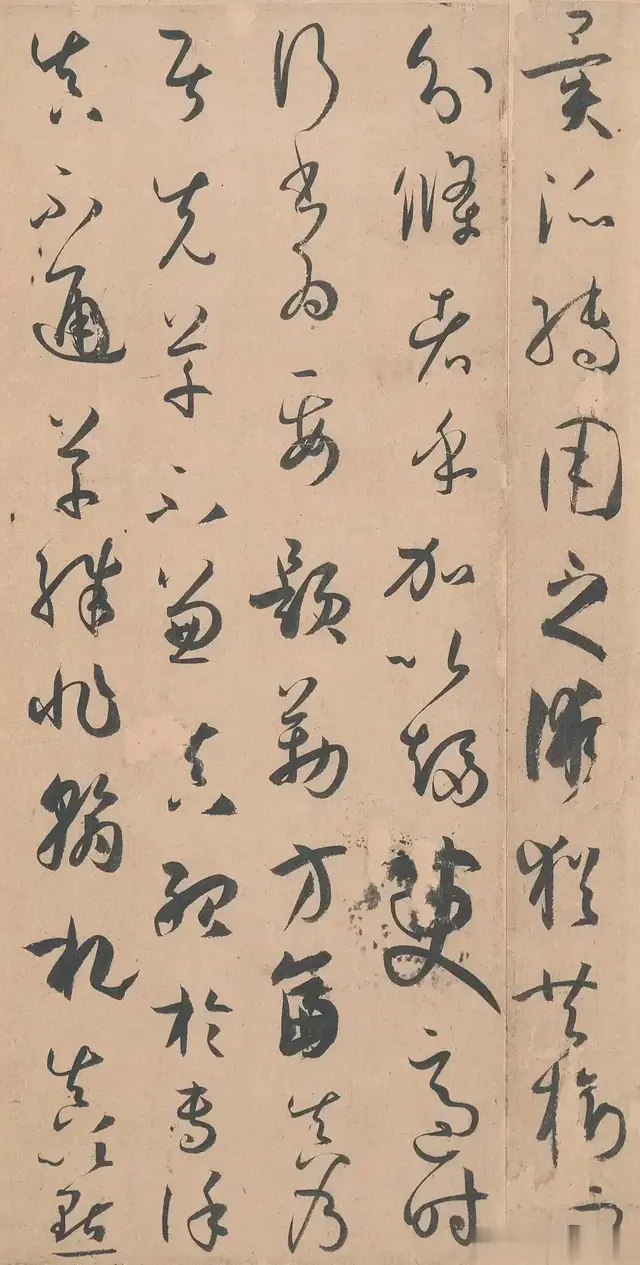 異派轉用之術猶共樹而
分條者乎加以趨變適時
行書為要題勒方畐真乃
居先草不兼真殆於專謹
真不通草殊非翰札真以點